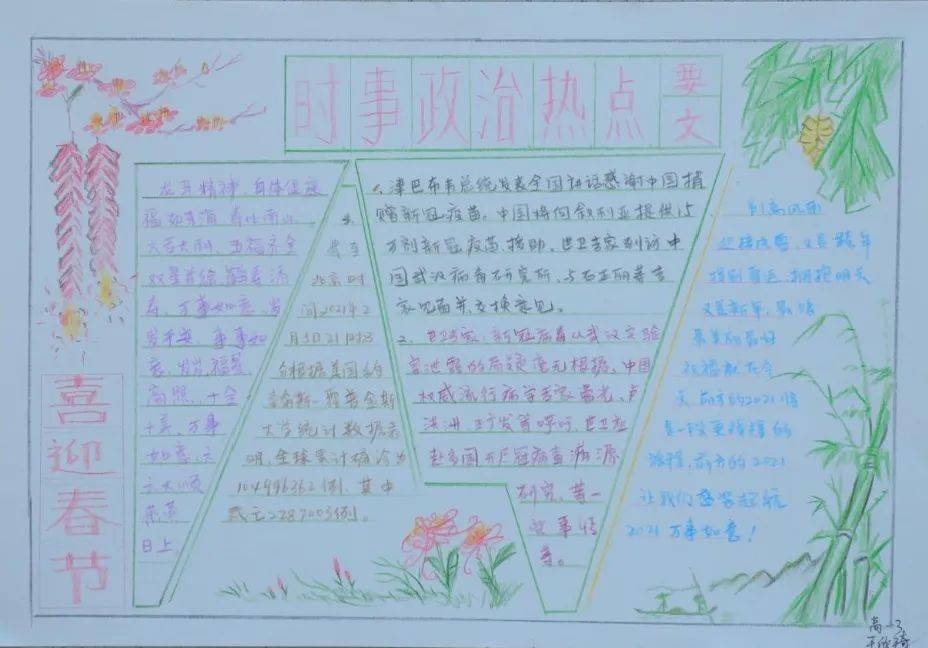 时事政治热点
要文
喜迎春节
龙马精神、身体健康
福如东海、寿比南山
大吉大利、五福齐全
寿、万事如意、岁
岁平安、事事如
意、福星
高照、十全
十美、万事
如意、六
六大顺
蒸蒸
日上
3、
截至
北京时
间2021年2
月5日21时23
分根据美国约
翰斯·霍普金斯
大学统计数据表
明,全球累计确诊为
104996362例,其中
死亡2287003例。
1、津巴布韦总统发表全国讲话感谢中国捐
赠新冠疫苗。中国将向叙利亚提供15
万剂新冠疫苗援助。世卫专家到访中
国武汉病毒研究所,与石正丽等专
家见面并交换意见。
2、世卫专家:新冠病毒从武汉实验
室泄露的质疑毫无根据。中国
权威流行病学专家曾光、卢
洪洲、王广发等呼吁,世卫应
赴多国开展冠病毒溯源
研究,等一
些事情
等。
告别风雨
迎接成熟,又是跨年
特别有运,拥抱明天
又是新年,最暖
最美的最好
祝福献在今
天,前方的2021将
是一段更辉煌的
旅程,前方的2021
让我们盛装起航
2021万事如意!
高一3